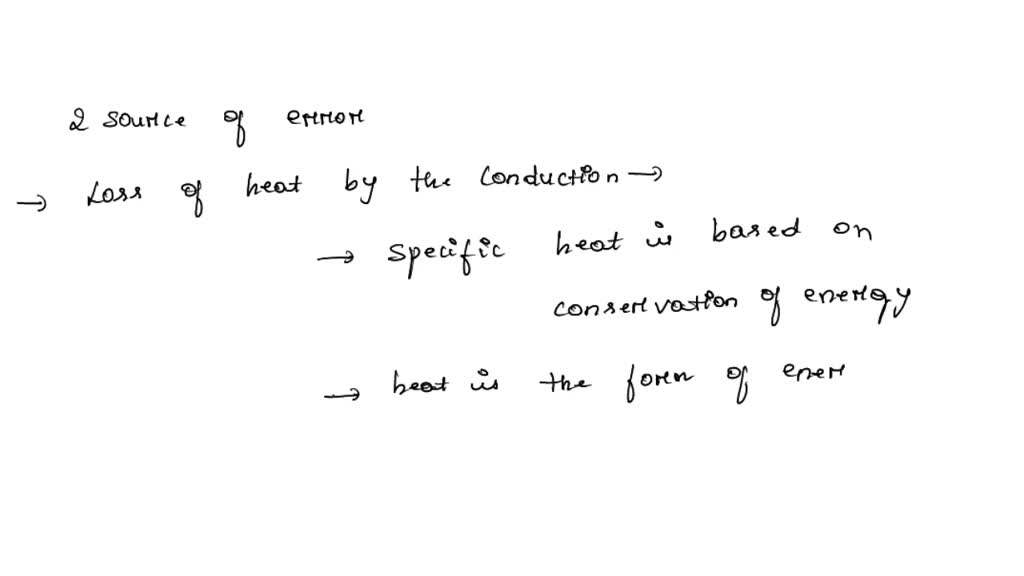 2 source of error
→ Loss of heat by the conduction →
→ specific heat is based on
conservation of energy
→ heat is the form of ener